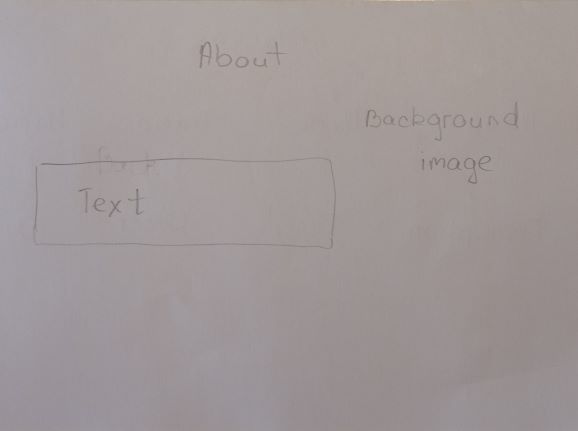 About
Background
image
Text